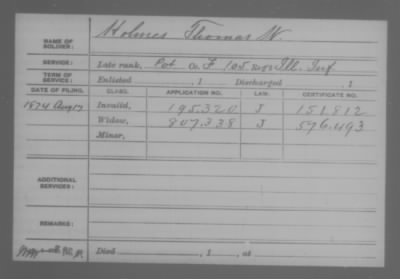 NAME OF SOLDIER: Holmes Thomas W.
SERVICE: Late rank, Pvt Co. F 105. Reg't Ill. Inf
TERM OF SERVICE: Enlisted , 1 Discharged , 1
DATE OF FILING. CLASS. APPLICATION NO. LAW. CERTIFICATE NO.
1874 Aug 17 Invalid, 195.320 J 151.812
Widow, 807.338 J 576.493
Minor,
ADDITIONAL SERVICES:
REMARKS:
Died , 1 , at